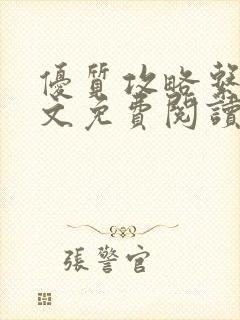 優質攻略繫
文免費閱讀
張警官